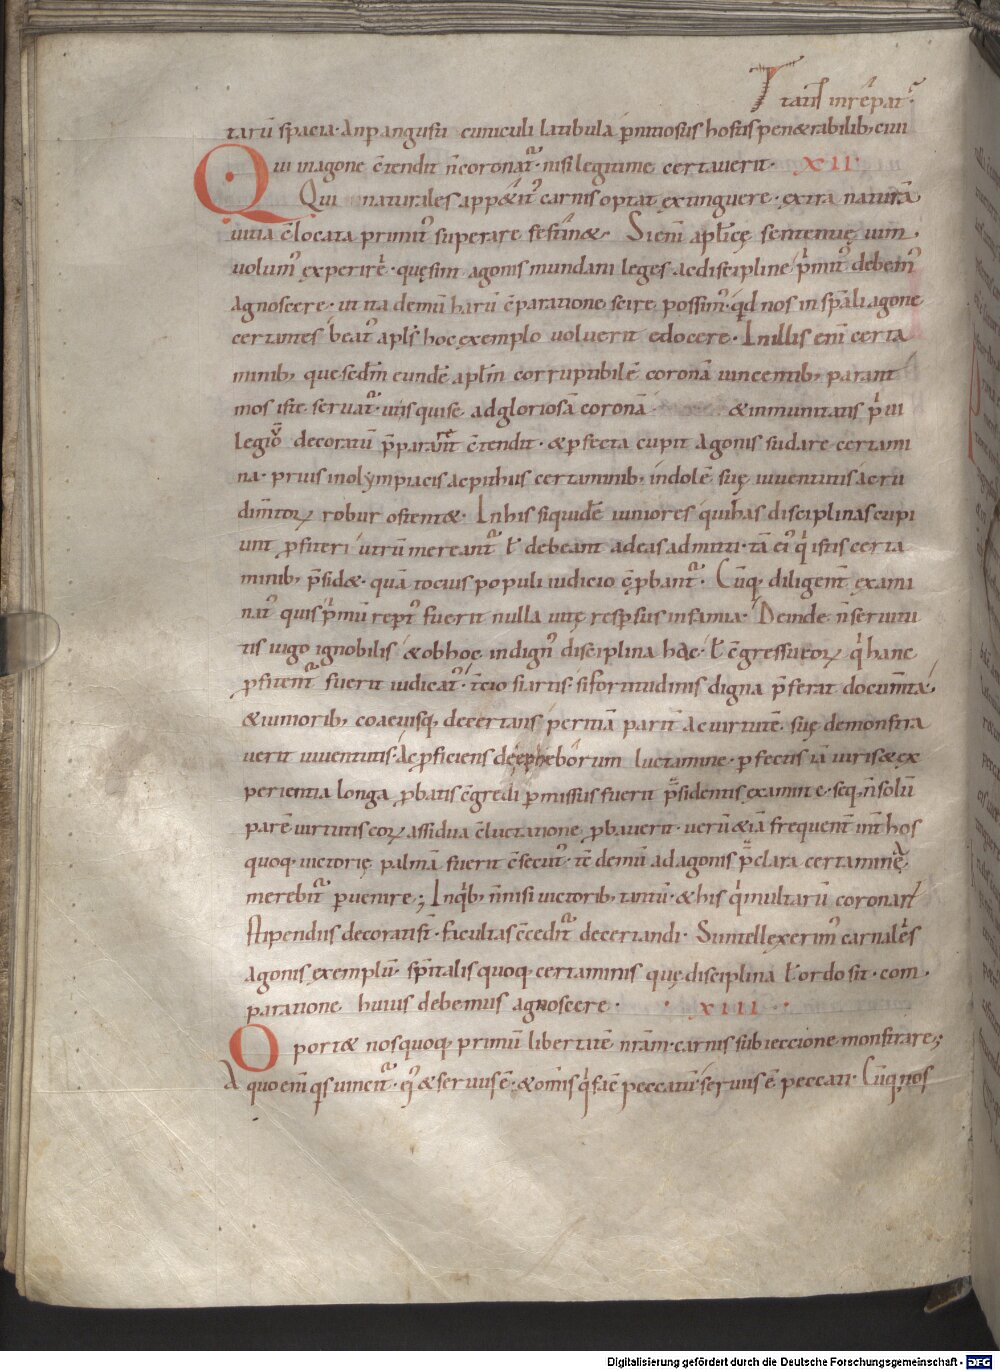 tarū spacia· An p angusti cuniculi latibula pniciosus hostis penetrabilib; civi
Qui in agone c̄tendit n̄ coronat᷑· nisi legitime certaverit· XII·
Qui naturales appetit᷒ carnis optat extinguere· extra naturā
vitia c̄locata primit᷒ superare festinet· Si enī aplīcę sententię vim
volum᷒ experire· quęsim agonis mundani leges ac disciplinę p̄mit᷒ debem᷒
agnoscere· ut ita demū harū c̄paratione scire possim᷒· qd nos in spāli agone
certantes beat᷒ apls hoc exemplo voluerit edocere· In illis enī certa
minib; que scdm eundē aplm corruptibilē coronā vincentib; parant
mos iste servat᷑· ut is qui se ad gloriosā coronā & inmunitatis pvi
legio decoratū p̄parat c̄tendit· & pfecta cupit agonis sudare certami
na· prius in olympiacis ac pithiis certaminib; indolē suę iuventutis ac ru
dimtoꝝ robur ostentet· In his siquidē iuniores qui has disciplinas cupi
unt pfiteri utrū mereant᷑ ł debeant ad eas admitti· tā ei᷒ q istis certa
minib; p̄sidet· quā tocius populi iudicio c̄pbant᷑· Cūq; diligent̄ exami
nat᷒ quis p̄mū rept᷒ fuerit nulla vitę respsus infamia· Deinde n̄ servitu
tis iugo ignobilis & ob hoc indign᷒ disciplina hac· ł c̄gressu eoꝝ q hanc
pfitent᷑ fuerit iudicat᷒· t̄cio si artis· si fortitudinis digna p̄ferat documta·
& iunioribꝫ coaevisq; decertans peritiā pari᷑t ac virtutē suę demonstra
verit iuventutis· Ac pficiens de epheborum luctamine· pfectis iā viris & ex
perientia longa pbatis c̄gredi pmissus fuerit p̄sidentis examine· seq; n̄ solū
parē virtutis eoꝝ assidua c̄luctatione pbaverit· verū & iā frequent̄ int̄ hos
quoq; victorię palmā fuerit c̄secut᷒· tē demū ad agonis p̄clara certamina
merebit᷑ pvenire; In qb; n̄ nisi victorib; tantū· & his q multarū coronarū
stipendiis decorati st̄· facultas c̄cedit᷑ decertandi· Si intellexerim᷒ carnales
agonis exemplū· spītalis quoq; certaminis quę disciplina ł ordo sit· com
paratione huius debemus agnoscere· XIII·
Oportet nos quoq; primū libertatē nrām· carnis subieccione monstrare;
A quo enī qs vincit᷑· ei᷒ & servus ē· & omīs q facit peccatū· servus ē peccati· Cūq; nos